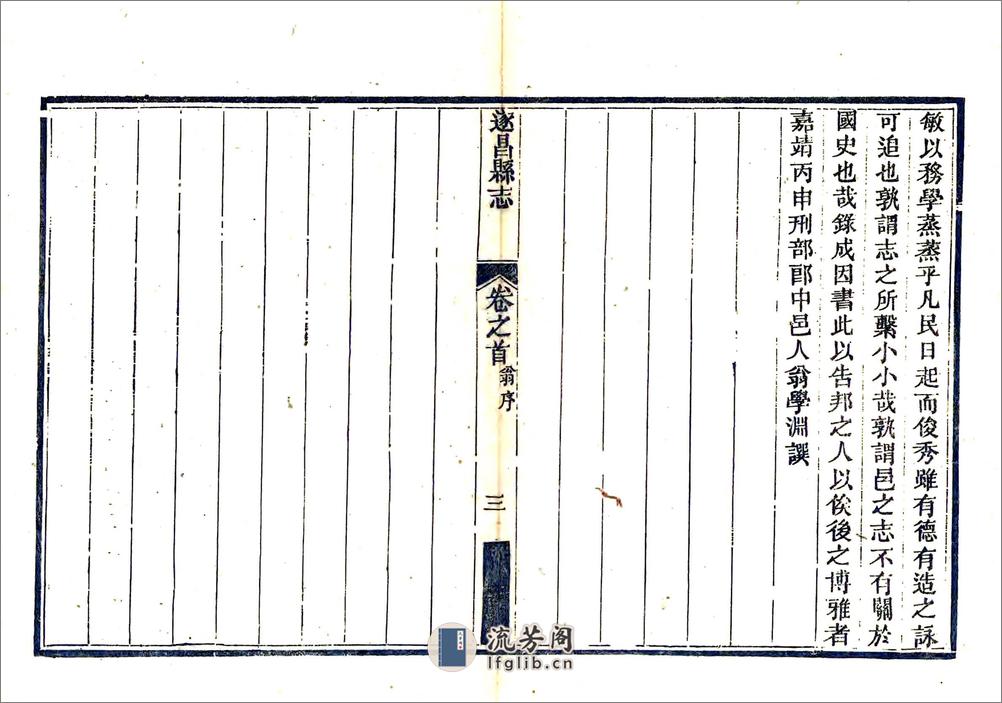 敏以務學蒸蒸乎凡民日起而俊秀雖有德有造之詠
可追也孰謂志之所繫小小哉孰謂邑之志不有關於
國史也哉錄成因書此以告邦之人以俟後之博雅者
嘉靖丙申刑部郎中邑人翁學淵譔
遂昌縣志
卷之首
翁序
三
流芳阁
lfglib.cn